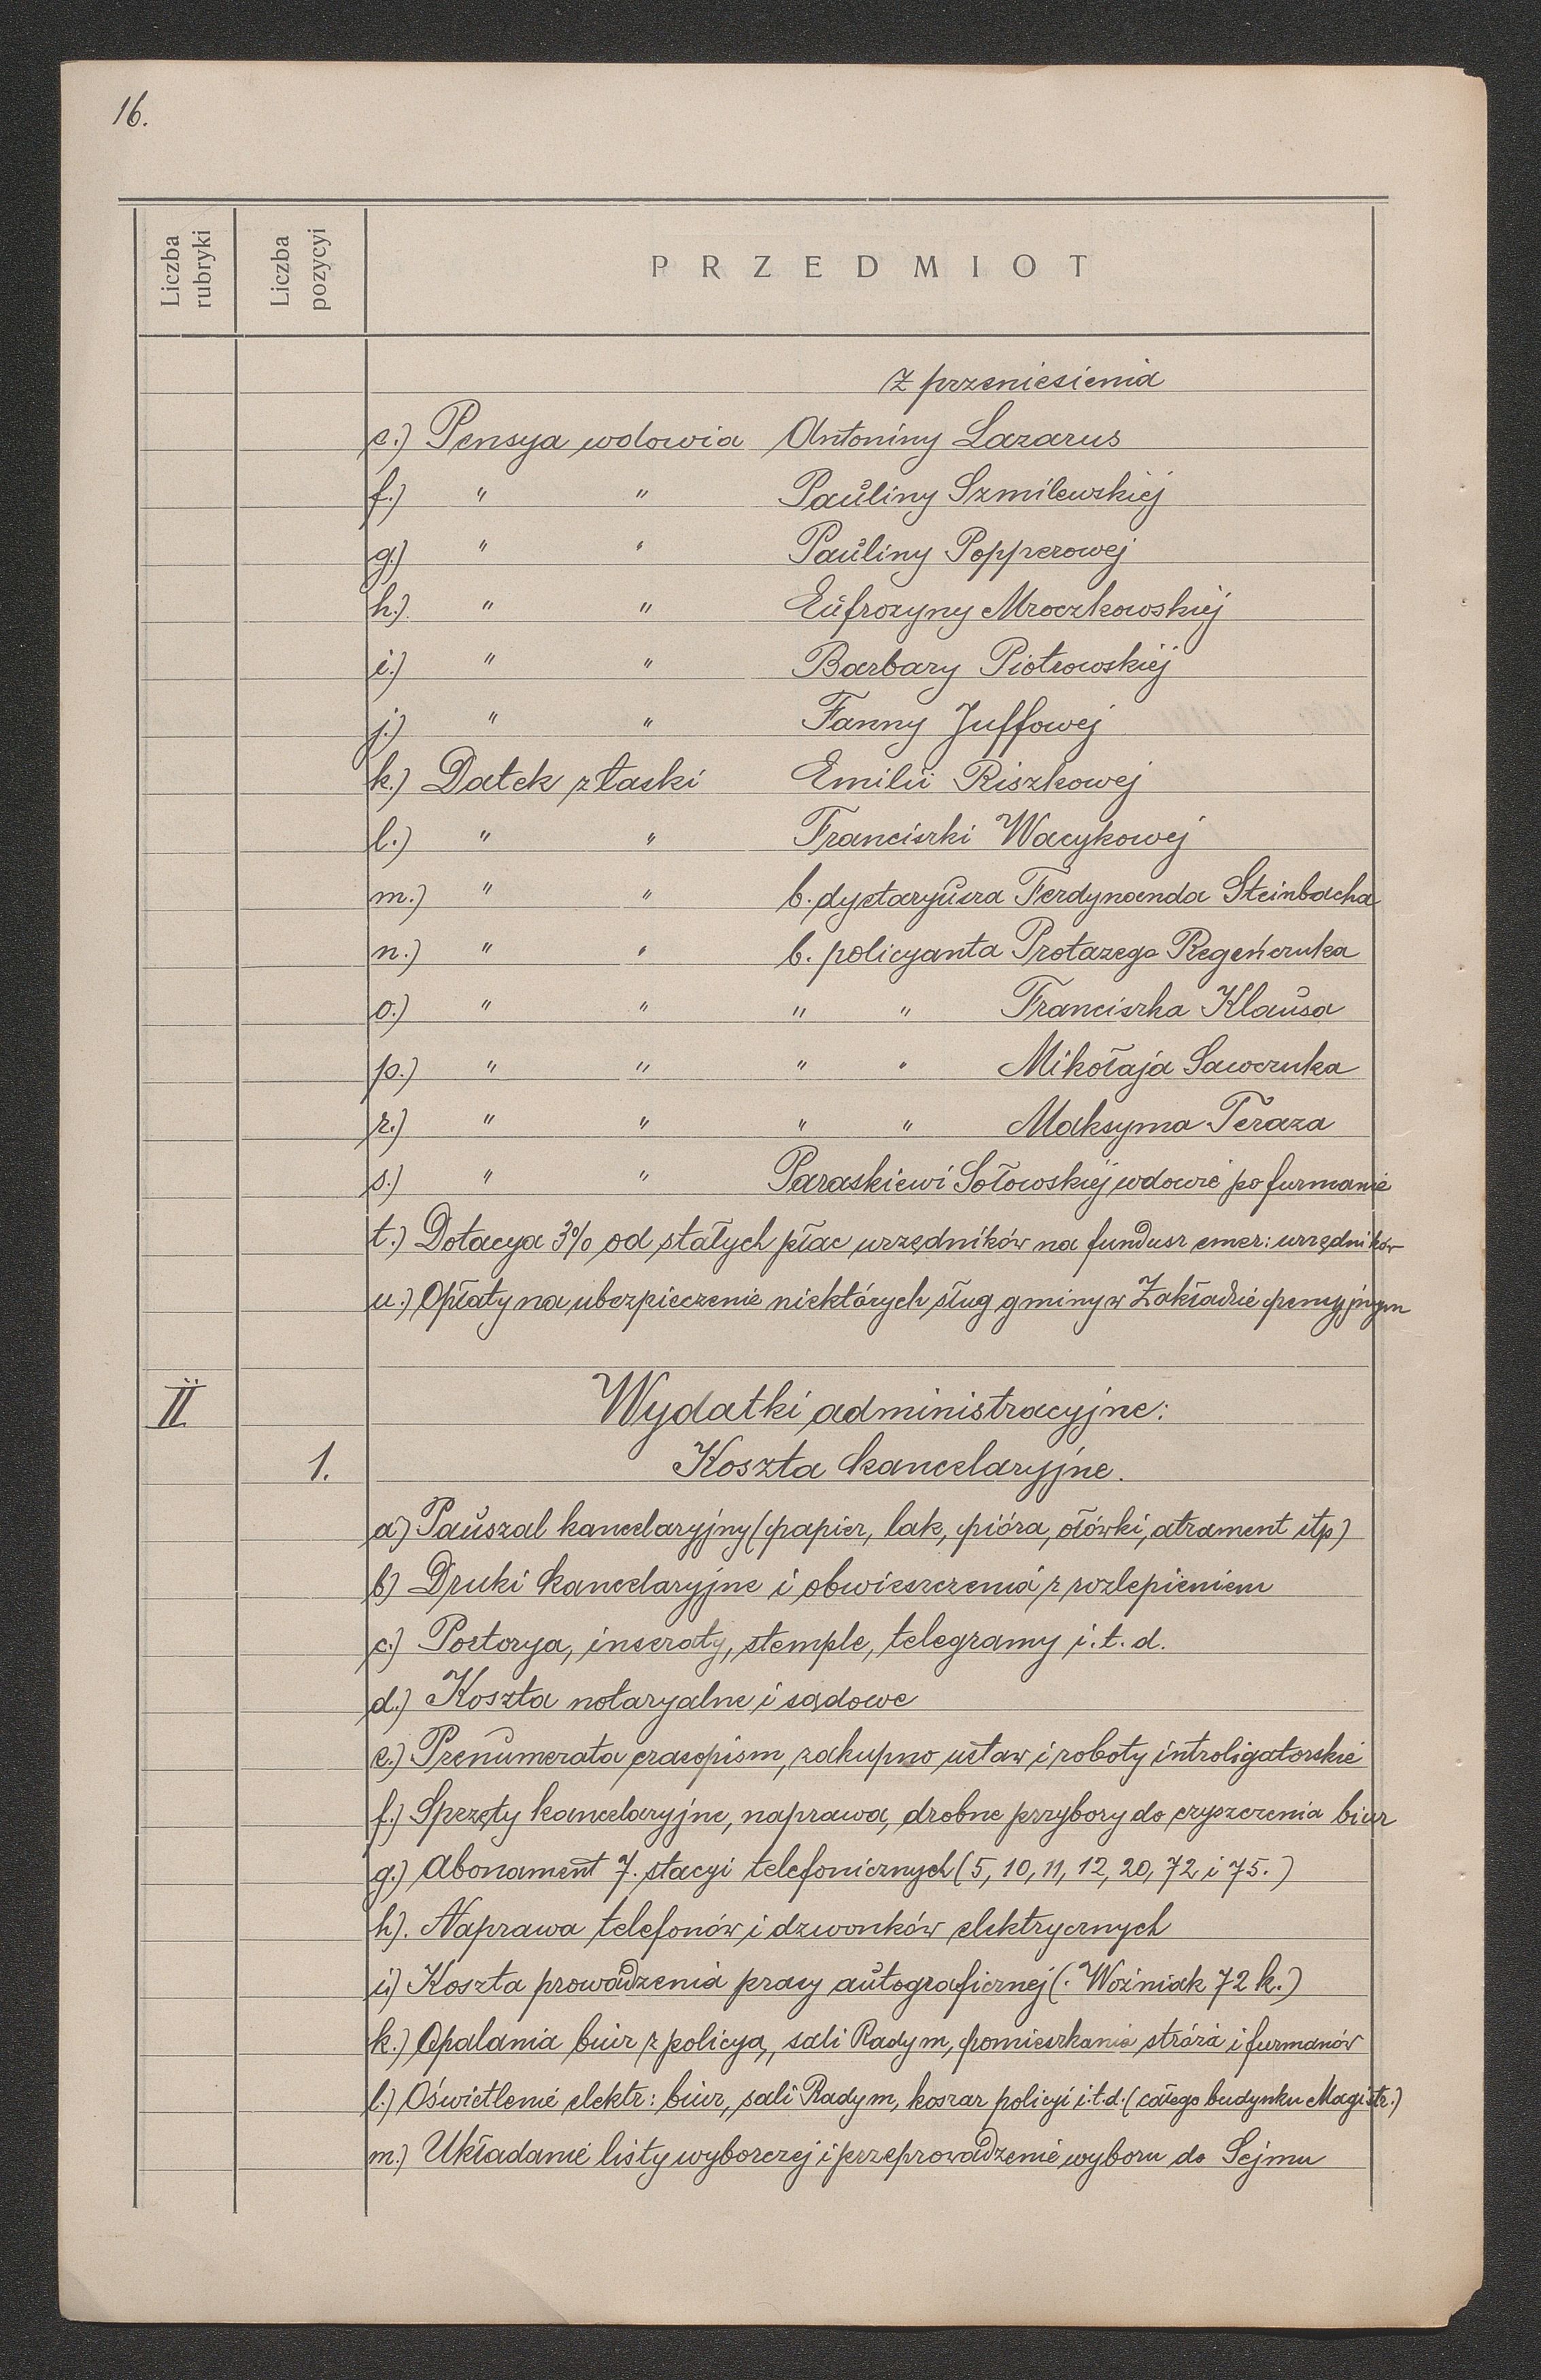 16.
Liczba rubryki
Liczba pozycyi
PRZEDMIOT
Z przeniesienia
e.) Pensya wdowia Antoniny Lazarus
f.) " " Pauliny Szmilewskiej
g.) " " Pauliny Popperowej
h.) " " Eufrozyny Mroczkowskiej
i.) " " Barbary Piotrowskiej
j.) " " Fanny Juffowej
k.) Datek z łaski Emilii Riszkowej
l.) " " Franciszki Wacykowej
m.) " " b. dyetaryusza Ferdynanda Steinbacha
n.) " " b. policyanta Protazego Regeńczuka
o.) " " " " Franciszka Klausa
p.) " " " " Mikołaja Sawczuka
r.) " " " " Maksyma Teraza
s.) " " Paraskiewi Sołowskiej wdowie po furmanie
t.) Dotacya 3% od stałych płac urzędników na fundusz emer: urzędników
u.) Opłaty na ubezpieczenie niektórych sług gminy w Zakładzie pensyjnym
II Wydatki administracyjne:
1. Koszta kancelaryjne.
a) Pauszal kancelaryjny (papier, lak, pióra, ołówki, atrament itp)
b) Druki kancelaryjne i obwieszczenia z rozlepieniem
c.) Portorya, inseraty, stemple, telegramy i.t.d.
d.) Koszta notaryalne i sądowe
e.) Prenumerata czasopism, zakupno ustaw i roboty introligatorskie
f.) Sprzęty kancelaryjne, naprawa, drobne przybory do czyszczenia biur
g.) Abonament 7. stacyi telefonicznych (5, 10, 11, 12, 20, 72 i 75.)
h). Naprawa telefonów i dzwonków elektrycznych
i) Koszta prowadzenia prasy autograficznej (. Woźniak 72 k.)
k.) Opalania biur z policyą, sali Rady m, pomieszkania stróża i furmanów
l.) Oświetlenie elektr: biur, sali Rady m, koszar policyi i.t.d. (całego budynku Magistr.)
m.) Układanie listy wyborczej i przeprowadzenie wyboru do Sejmu